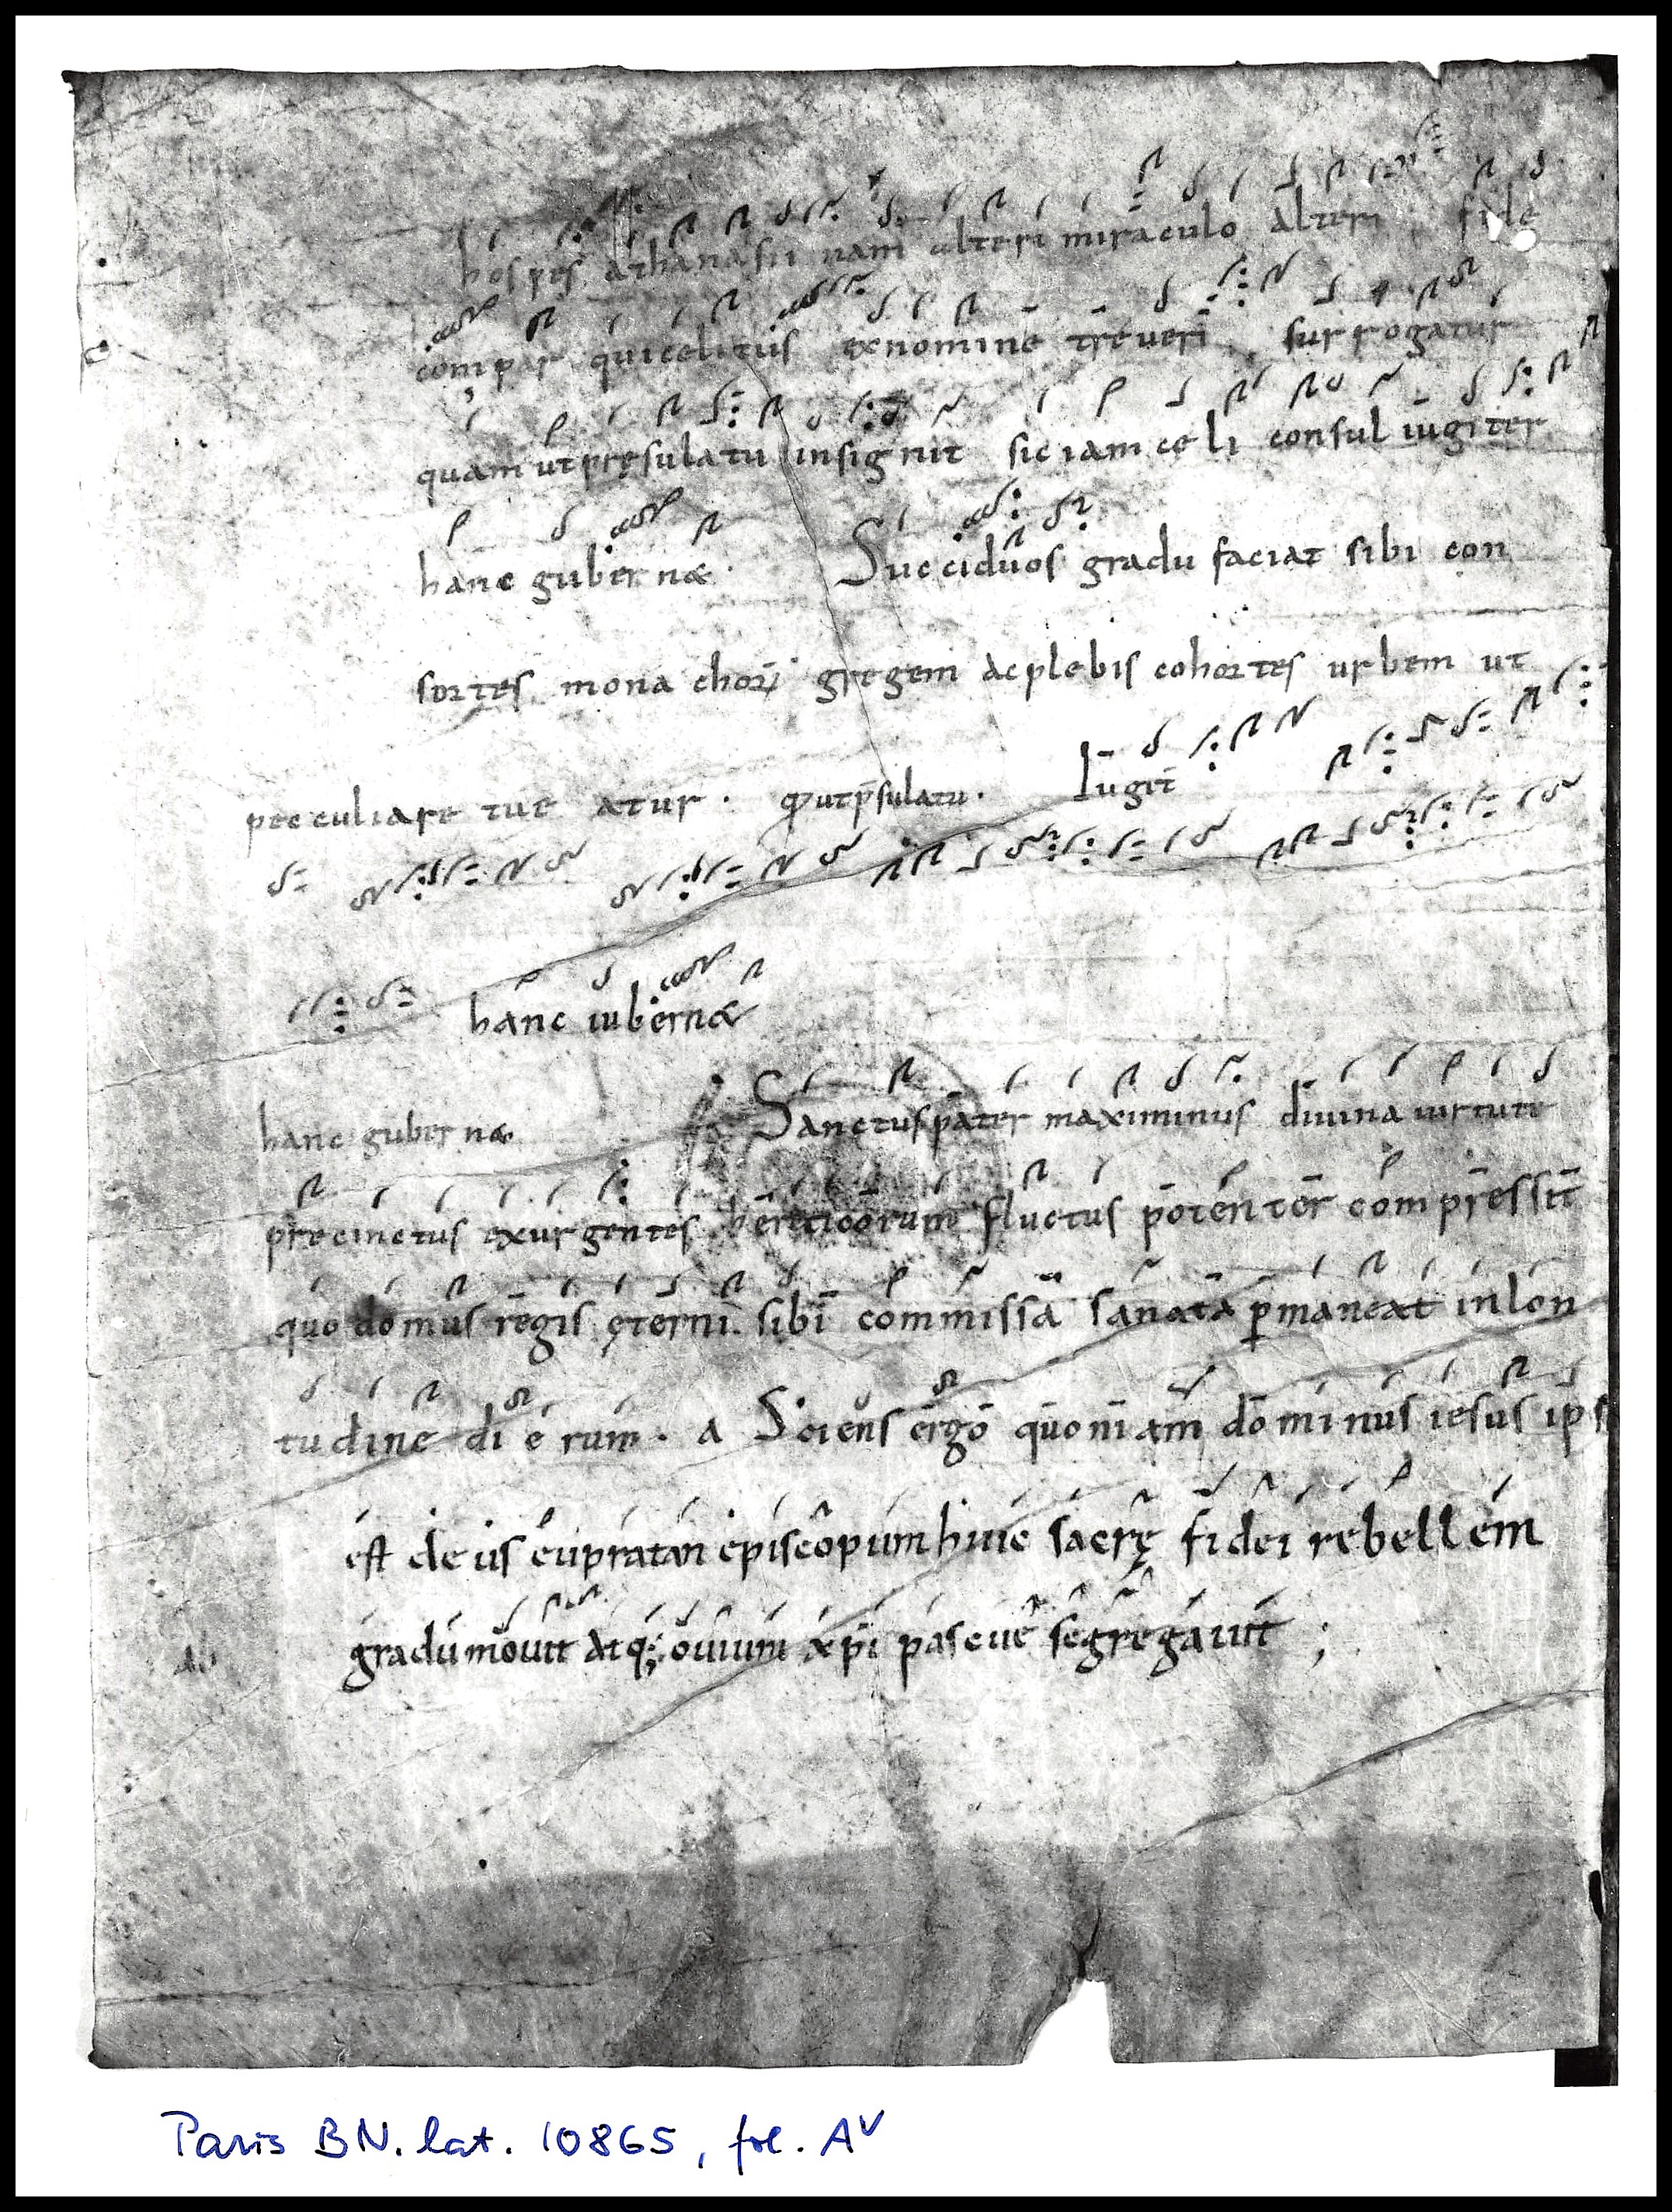 hospes athanasii nam alteri miraculo alteri fide
compar qui celitus ex nomine treueri surrogatur
quam ut pręsulatu insignit sic iam celi consul iugiter
hanc gubernæ. Succiduos gradu faciat sibi con
sortes monachorū gregem ac plebis cohortes urbem ut
peculiare tueatur. ut psulatu. Iugit
hanc iubernæ
hanc gubernæ Sanctus pater maximinus diuina uirtute
precinctus exurgentes hereticorum fluctus potenter compressit
quo domus regis ęterni. sibi commissa sanata pmaneat in lon
tudine dierum. a Sciens ergo quoniam dominus iesus ips
est deus eupratan episcopum huic sacrę fidei rebellem
gradu mouit atq; ouium xpi pascue segregauit ;
Paris BN. lat. 10865, fol. Av